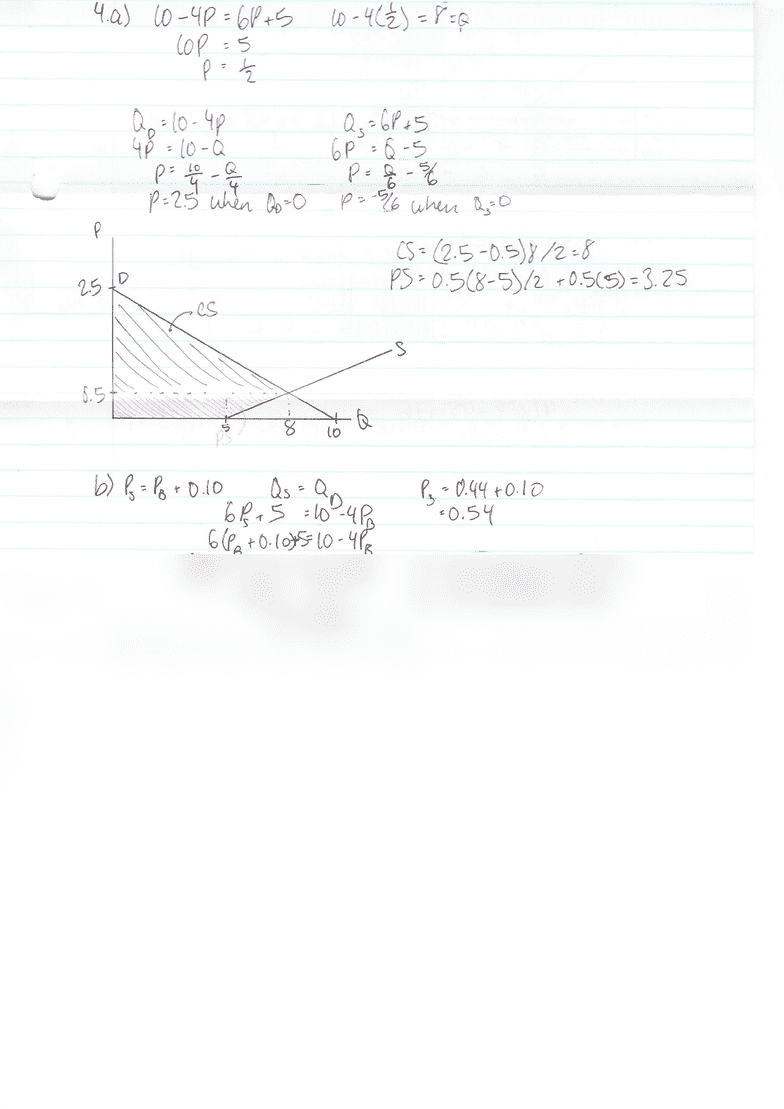 4.a) 10-4P = 6P+5 10-4(½) = 8 = Q
10P = 5
P = ½
Q_D = 10-4P Q_S = 6P+5
4P = 10-Q 6P = Q-5
P = 10/4 - Q/4 P = Q/6 - 5/6
P = 2.5 when Q_D=0 P = -5/6 when Q_S=0
P
CS = (2.5-0.5)8/2 = 8
PS = 0.5(8-5)/2 + 0.5(5) = 3.25
2.5 D
CS
S
0.5
5 8 10 Q
PS
b) P_S = P_B + 0.10 Q_S = Q_D P_S = 0.44+0.10
6P_S + 5 = 10-4P_B = 0.54
6(P_B + 0.10)+5 = 10-4P_B